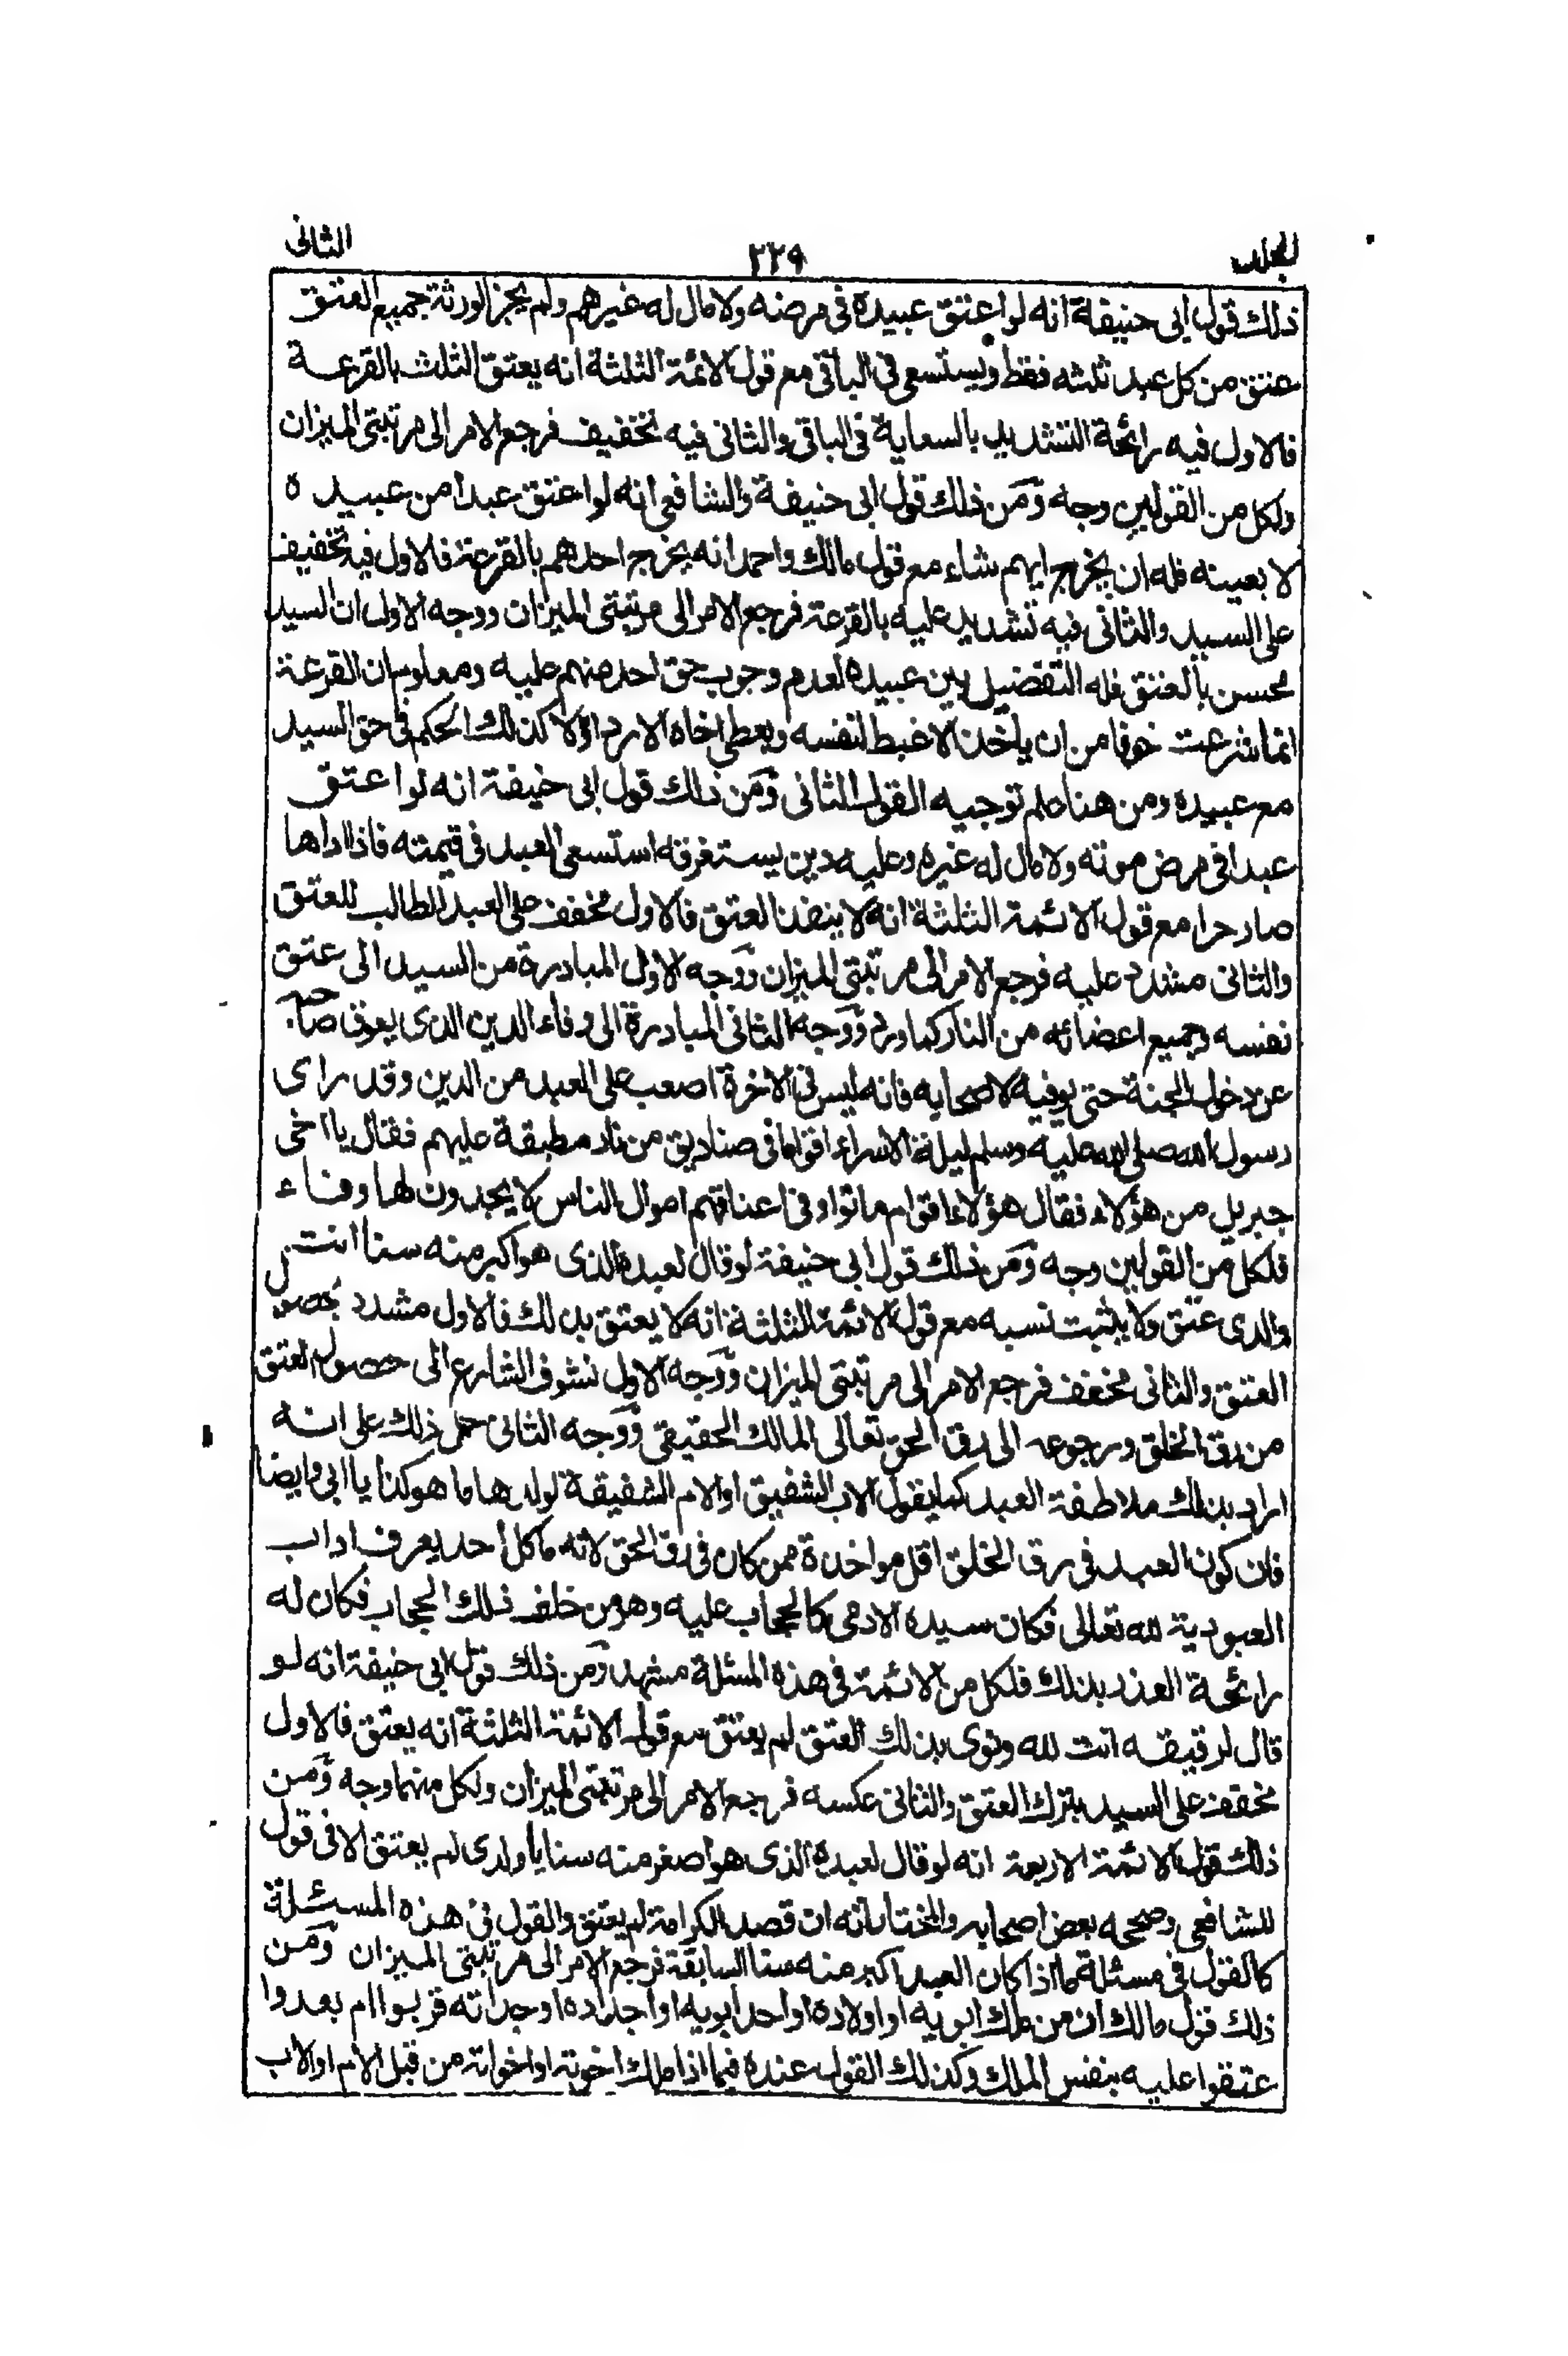 المجلد ٢٢٩ الثانى
ذلك قول ابى حنيفة انه لو اعتق عبيده فى مرضه ولا مال له غيرهم ولم يجز الورثة جميع العتق
عتق من كل عبد ثلثه فقط ويستسعى فى الباقى مع قول الائمة الثلثة انه يعتق الثلث بالقرعة
فالاول فيه رائحة التشديد بالسعاية فى الباقى والثانى فيه تخفيف فرجع الامر الى مرتبتى الميزان
ولكل من القولين وجه ومن ذلك قول ابى حنيفة والشافعى انه لو اعتق عبدا من عبيده
لا بعينه فله ان يخرج ايهم شاء مع قول مالك واحمد انه يخرج احدهم بالقرعة فالاول فيه تخفيف
على السيد والثانى فيه تشديد عليه بالقرعة فرجع الامر الى مرتبتى الميزان ووجه الاول ان السيد
محسن بالعتق فله التفضيل بين عبيده لعدم وجوب حق احد منهم عليه ومعلوم ان القرعة
انما شرعت خوفا من ان ياخذ الاغبط لنفسه ويعطى اخاه الاردا ولا كذلك الحكم فى حق السيد
مع عبيده ومن هنا علم توجيه القول الثانى ومن ذلك قول ابى حنيفة انه لو اعتق
عبدا فى مرض موته ولا مال له غيره وعليه دين يستغرقه استسعى العبد فى قيمته فاذا اداها
صار حرا مع قول الائمة الثلثة انه لا ينفذ العتق فالاول مخفف على العبد الطالب للعتق
والثانى مشدد عليه فرجع الامر الى مرتبتى الميزان ووجه الاول المبادرة من السيد الى عتق
نفسه وجميع اعضائه من النار كما ورد ووجه الثانى المبادرة الى وفاء الدين الذى يعوق صاحبه
عن دخول الجنة حتى يوفيه لاصحابه فانه ليس فى الاخرة اصعب على العبد من الدين وقد راى
رسول الله صلى الله عليه وسلم ليلة الاسراء اقواما فى صناديق من نار مطبقة عليهم فقال يا اخى
جبريل من هؤلاء فقال هؤلاء اقوام ماتوا وفى اعناقهم اموال الناس لا يجدون لها وفاء
فلكل من القولين وجه ومن ذلك قول ابى حنيفة لو قال لعبده الذى هو اكبر منه سنا انت
والدى عتق ولا يثبت نسبه مع قول الائمة الثلثة انه لا يعتق بذلك فالاول مشدد بحصول
العتق والثانى مخفف فرجع الامر الى مرتبتى الميزان ووجه الاول تشوف الشارع الى حصول العتق
من رق الخلق ورجوعه الى رق الحق تعالى المالك الحقيقى ووجه الثانى حمل ذلك على انه
اراد بذلك ملاطفة العبد كما يقول الاب الشفيق او الام الشفيقة لولدها ما هو كذا يا ابى وايضا
فان كون العبد فى رق الخلق اقل مواخذة ممن كان فى رق الحق لانه ما كل احد يعرف اداب
العبودية لله تعالى فكان سيده الادمى كالحجاب عليه وهو من خلف ذلك الحجاب فكان له
رائحة العذر بذلك فلكل من الائمة فى هذه المسئلة مشهد ومن ذلك قول ابى حنيفة انه لو
قال لرقيقه انت لله ونوى بذلك العتق لم يعتق مع قول الائمة الثلثة انه يعتق فالاول
مخفف على السيد بترك العتق والثانى عكسه فرجع الامر الى مرتبتى الميزان ولكل منهما وجه ومن
ذلك قول الائمة الاربعة انه لو قال لعبده الذى هو اصغر منه سنا يا ولدى لم يعتق الا فى قول
للشافعى وصححه بعض اصحابه والمختار انه ان قصد الكرامة لم يعتق والقول فى هذه المسئلة
كالقول فى مسئلة ما اذا كان العبد اكبر منه سنا السابقة فرجع الامر الى مرتبتى الميزان ومن
ذلك قول مالك ان من ملك ابويه او اولاده او احد ابويه او اجداده او جداته قربوا ام بعدوا
عتقوا عليه بنفس الملك وكذلك القول عنده فيما اذا ملك اخوته او اخواته من قبل الام او الاب